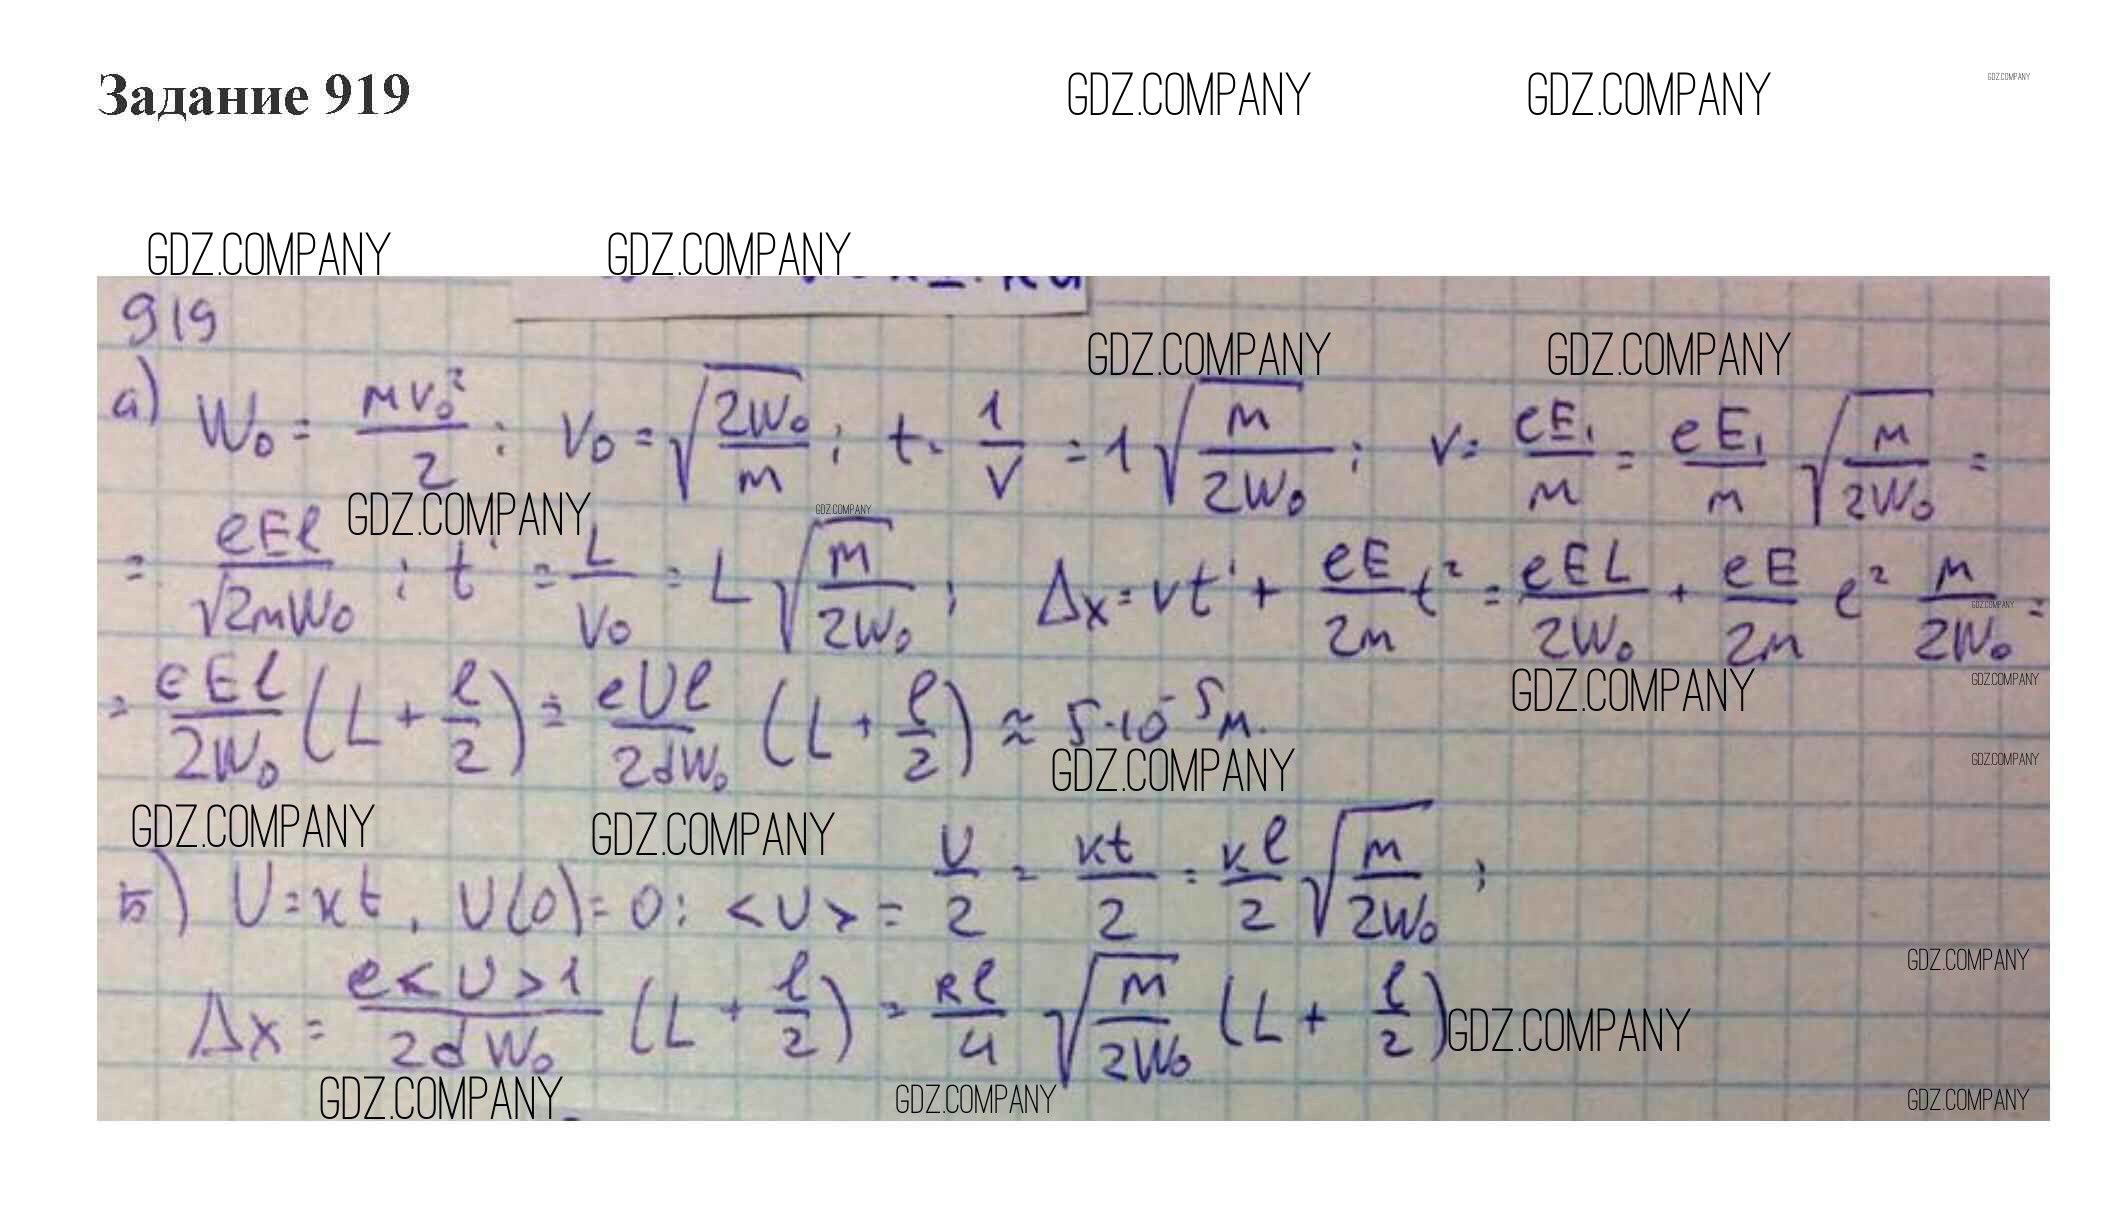 Задание 919
GDZ.COMPANY GDZ.COMPANY GDZ.COMPANY
GDZ.COMPANY GDZ.COMPANY
919
GDZ.COMPANY GDZ.COMPANY
а) W₀ = mv₀²/2 ; v₀ = √(2W₀/m) ; t = 1/v = 1√(m/2W₀) ; v = eE₁/m = eE₁/m √(m/2W₀) =
GDZ.COMPANY GDZ.COMPANY
= eEl/√2mW₀ ; t' = L/v₀ = L√(m/2W₀) ; Δx = vt' + eE/2m t² = eEL/2W₀ + eE/2m e² m/2W₀ =
GDZ.COMPANY
GDZ.COMPANY GDZ.COMPANY
= eEl/2W₀ (L + l/2) = eUl/2dW₀ (L + l/2) ≈ 5·10⁻⁵ м.
GDZ.COMPANY GDZ.COMPANY
GDZ.COMPANY GDZ.COMPANY
Б) U = кt, U(0) = 0 : <U> = U/2 = кt/2 = кl/2 √(m/2W₀) ;
GDZ.COMPANY
Δx = e<U>1/2dW₀ (L + l/2) = кl/4 √(m/2W₀) (L + l/2)
GDZ.COMPANY
GDZ.COMPANY GDZ.COMPANY GDZ.COMPANY